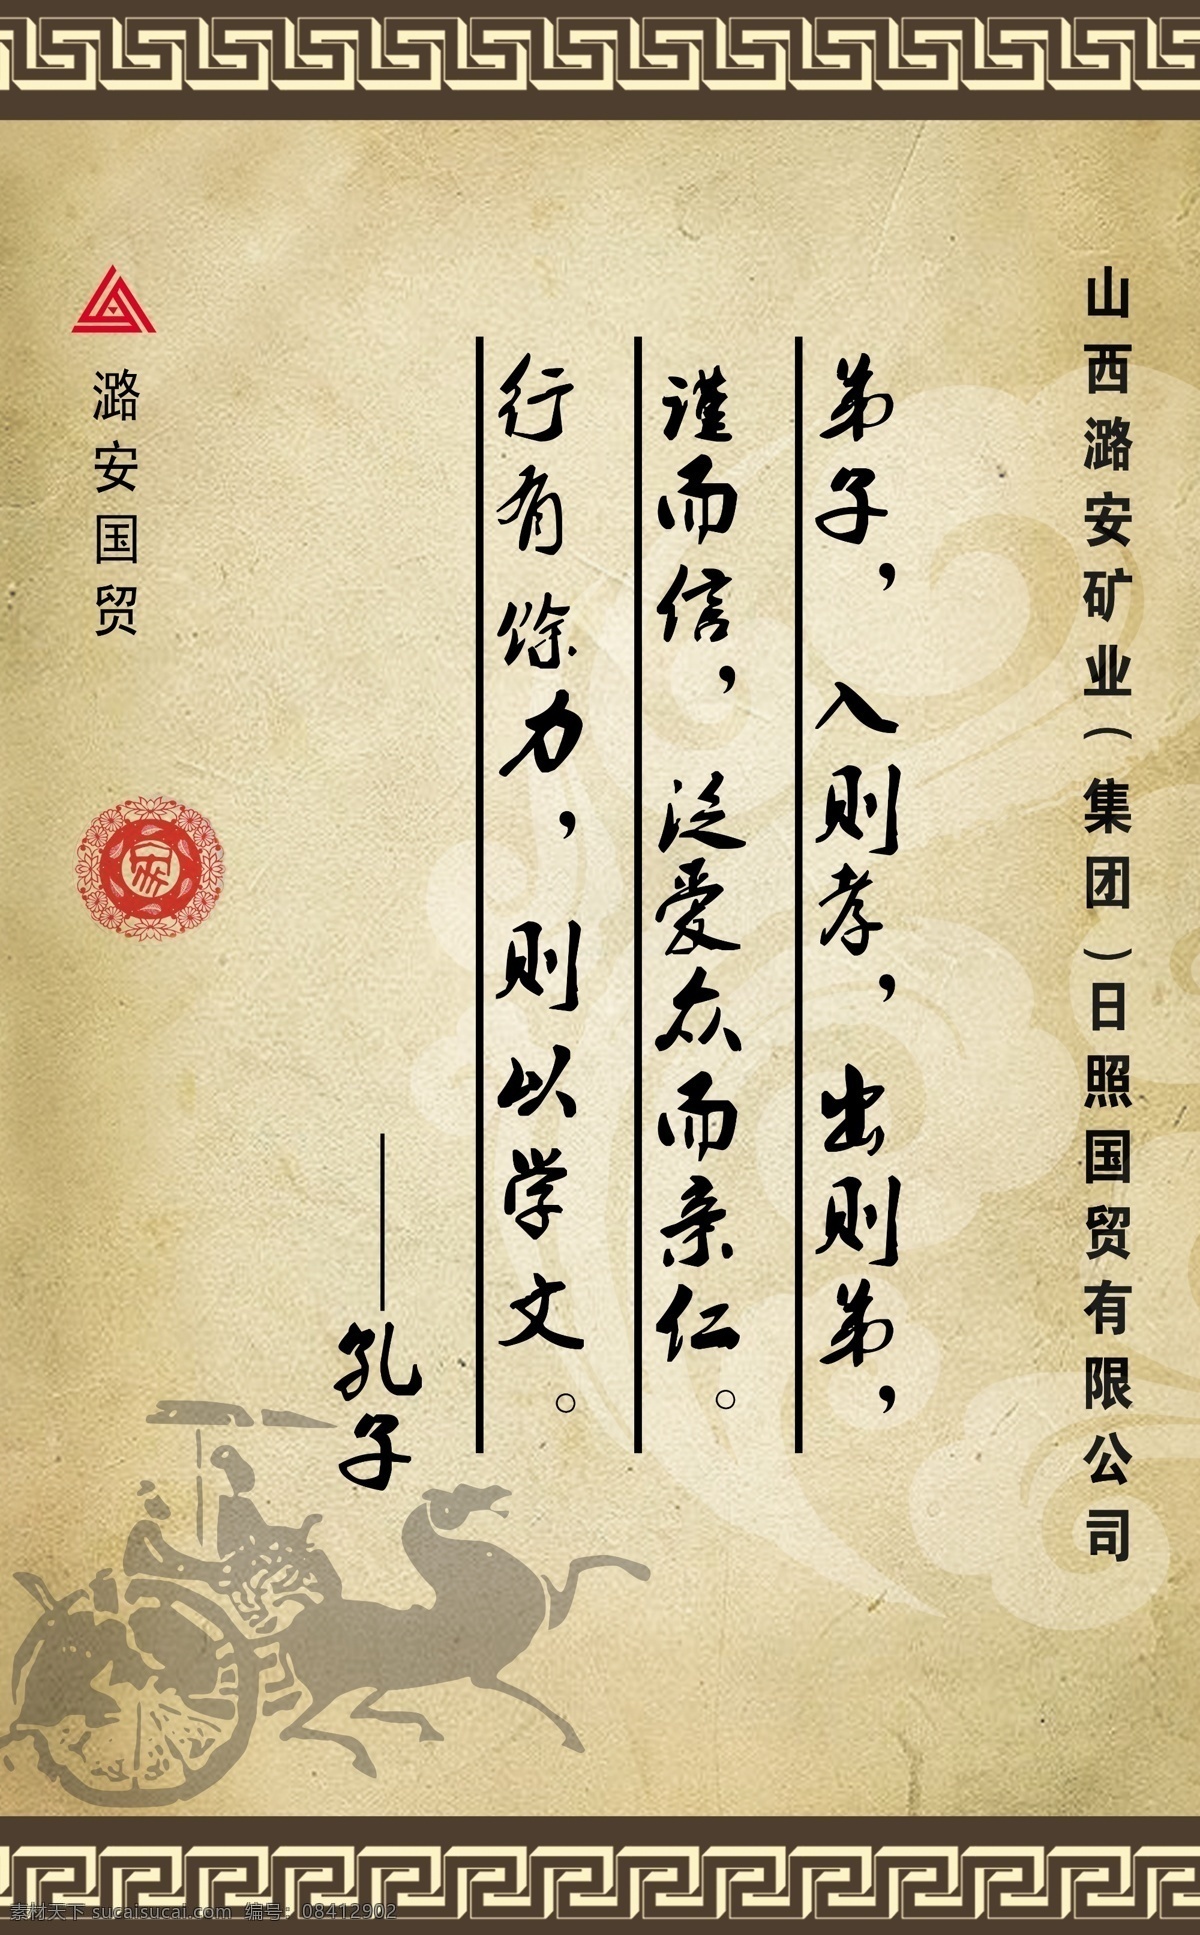 山西潞安矿业(集团)日照国贸有限公司
弟子，入则孝，出则弟，
谨而信，泛爱众而亲仁。
行有馀力，则以学文。
——孔子
潞安国贸
素材天下 sucaisucai.com 编号：08412902